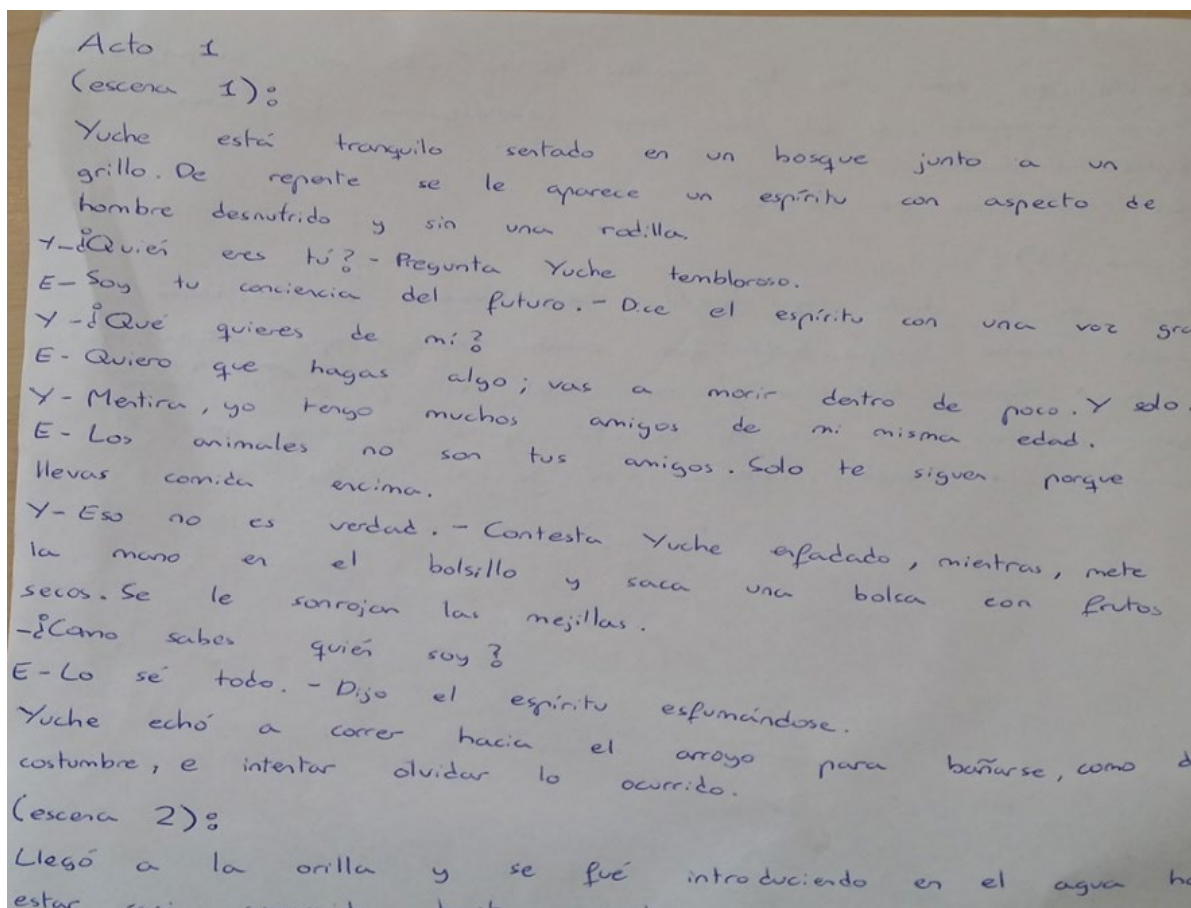 Acto 1
(escena 1):
Yuche está tranquilo sentado en un bosque junto a un
grillo. De repente se le aparece un espíritu con aspecto de
hombre desnutrido y sin una rodilla.
Y-¿Quién eres tú? - Pregunta Yuche tembloroso.
E- Soy tu conciencia del futuro. - Dice el espíritu con una voz
Y-¿Qué quieres de mí?
E- Quiero que hagas algo; vas a morir dentro de poco. Y solo.
Y- Mentira, yo tengo muchos amigos de mi misma edad.
E- Los animales no son tus amigos. Solo te siguen porque
llevas comida encima.
Y- Eso no es verdad. - Contesta Yuche enfadado, mientras, mete
la mano en el bolsillo y saca una bolsa con frutos
secos. Se le sonrojan las mejillas.
-¿Como sabes quién soy?
E- Lo sé todo. - Dijo el espíritu esfumándose.
Yuche echó a correr hacia el arroyo para bañarse, como
costumbre, e intentar olvidar lo ocurrido.
(escena 2):
Llegó a la orilla y se fué introduciendo en el agua
estar